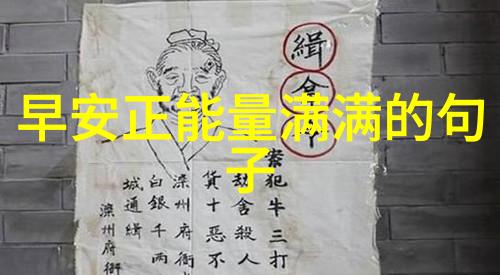 早安正能量满满的句
子
緝拿
案犯牛三打
劫舍殺人
貨十惡不
滦州府衙
白銀千两
城通緝
滦州府衙